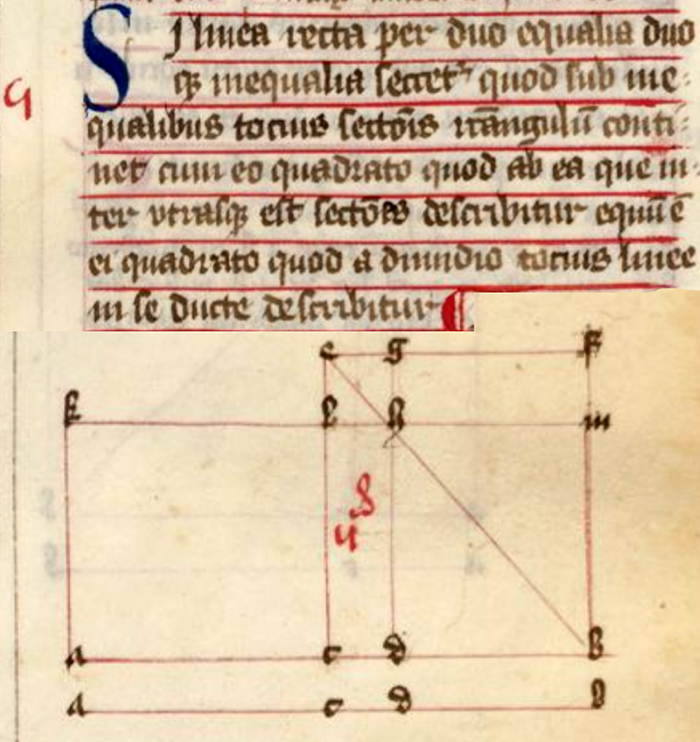 Si linea recta per duo equalia duo
q3 inequalia secetr quod sub ine
qualibus tocius sectōis rtāngulū conti
net cum eo quadrato quod ab ea que in
ter utrasq3 est sectōes describitur equū ē
ei quadrato quod a dimidio tocius linee
in se ducte describitur
e g f
k l h m
a c d b
a c d b